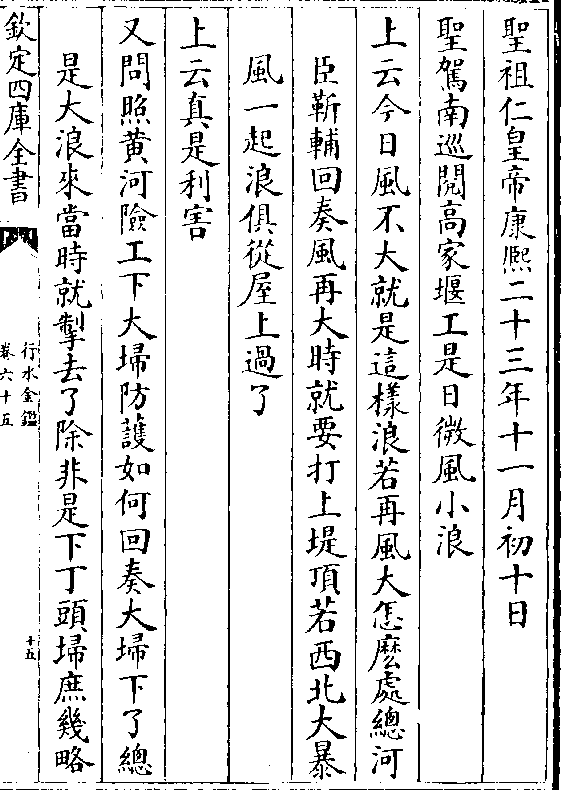 聖祖仁皇帝康熙二十三年十一月初十日
聖駕南巡閱高家堰工是日微風小浪
上云今日風不大就是這樣浪若再風大怎麽處總河
臣靳輔回奏風再大時就要打上堤頂若西北大暴
風一起浪俱從屋上過了
上云真是利害
又問照黄河險工下大埽防護如何回奏大埽下了總
是大浪來當時就掣去了除非是下丁頭埽庶幾略
欽定四庫全書
行水金鑑
卷六十五
十五